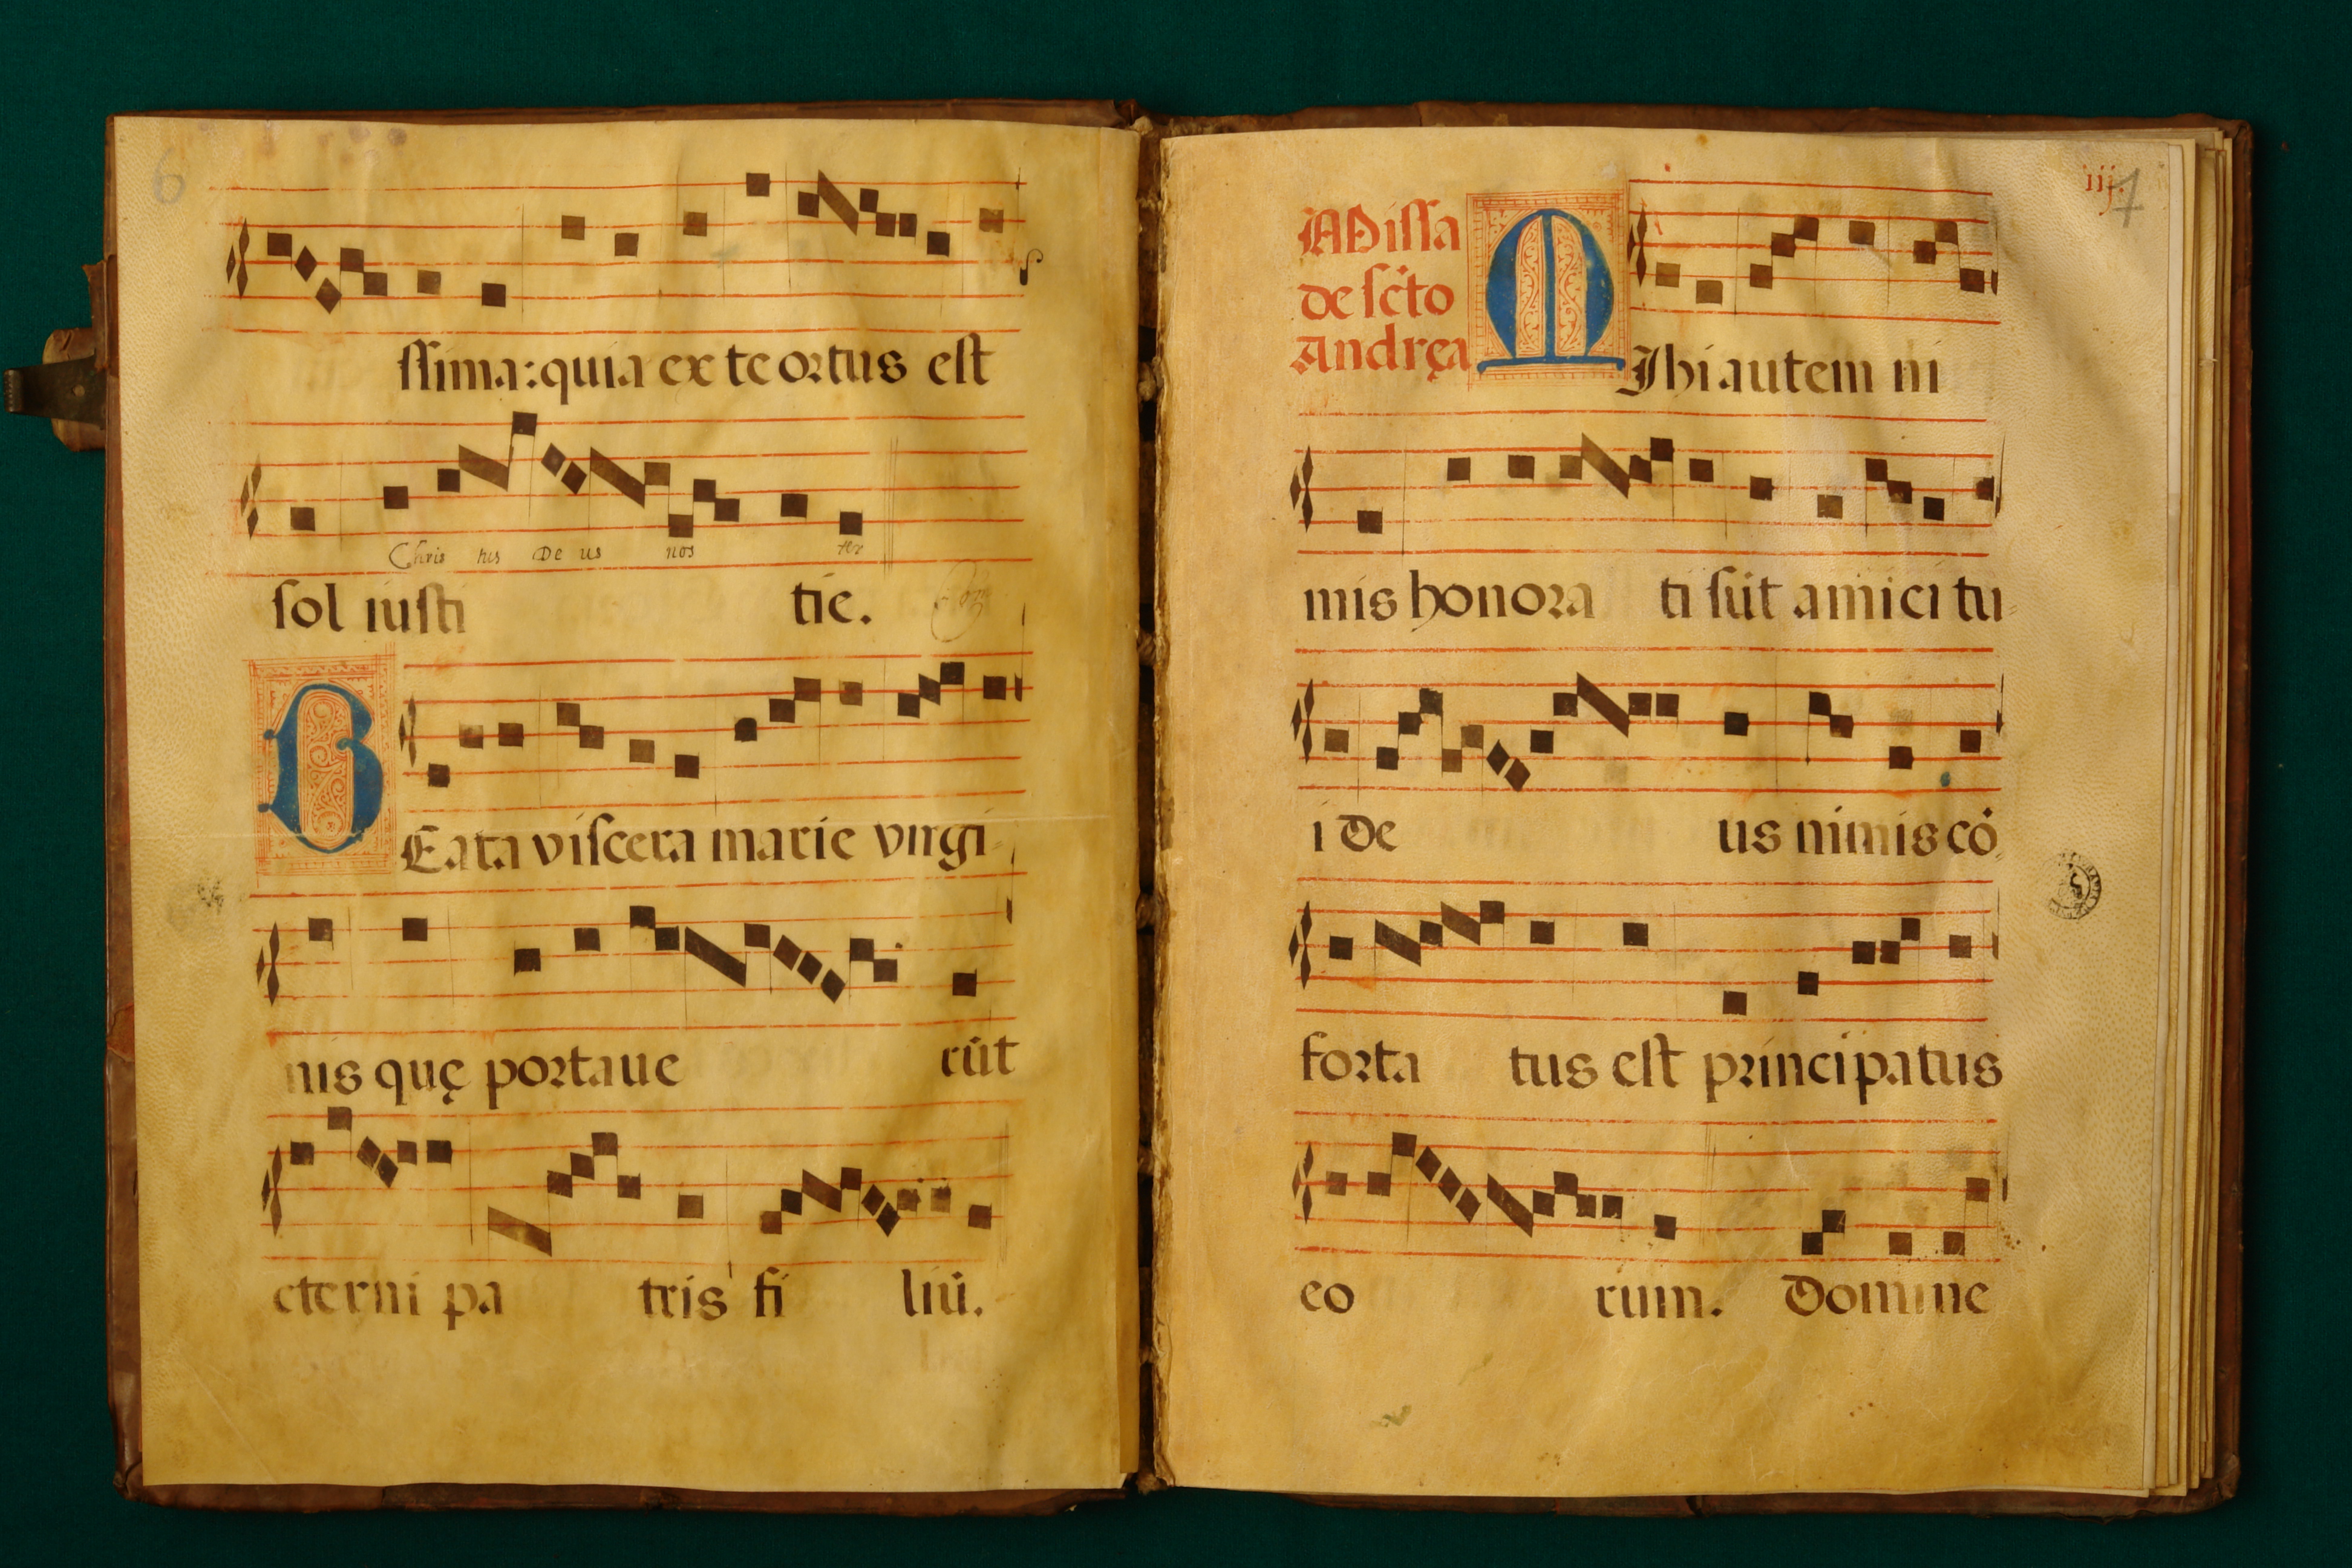 6
ſſima: quia ex te ortus eſt
Chris tus De us nos ter
ſol iuſti tie.
BEata viſcera marie virgi-
nis quę portaue rūt
eterni pa tris fi liū.
iij. 7
Miſſa
de ſcto
Andręa
MIhi autem ni
mis honora ti ſūt amici tu-
i De us nimis cō-
forta tus eſt principatus
eo rum. Domine